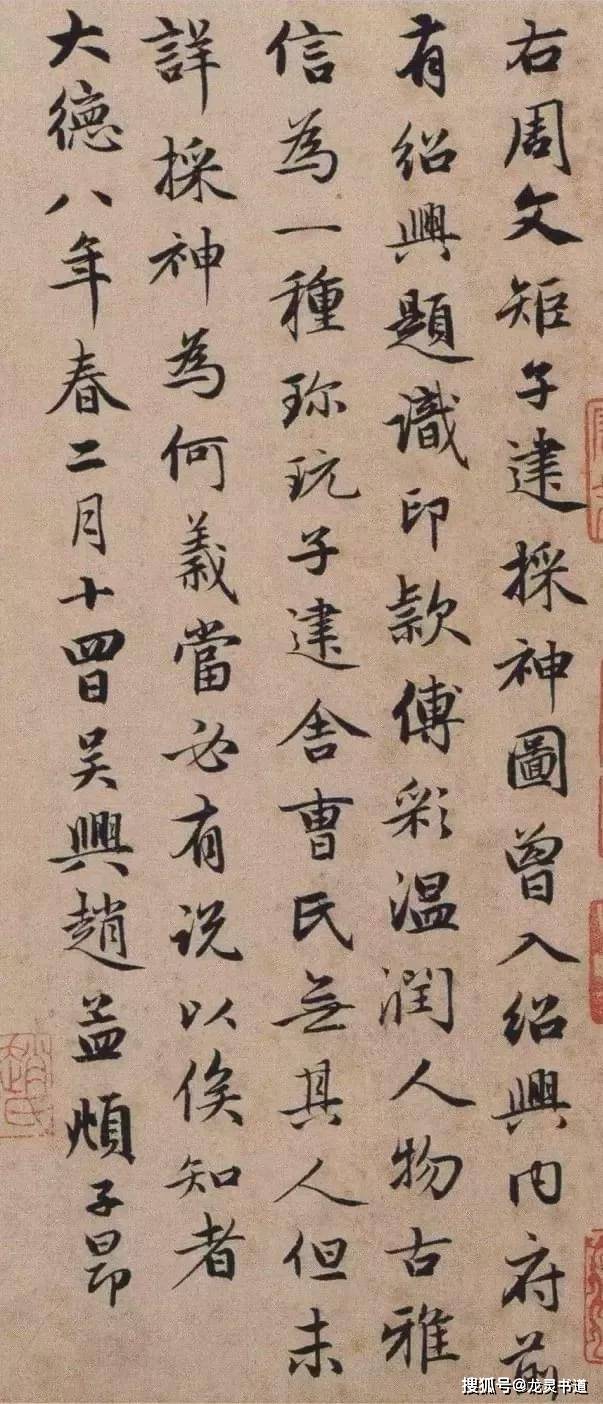 右周文矩子建採神圖曾入紹興内府前
有紹興題識印款傅彩温潤人物古雅
信為一種珎玩子建舍曹氏無其人但未
詳採神為何義當必有说以俟知者
大德八年春二月十四日吴興趙孟頫子昂
趙氏
搜狐号@龙灵书道